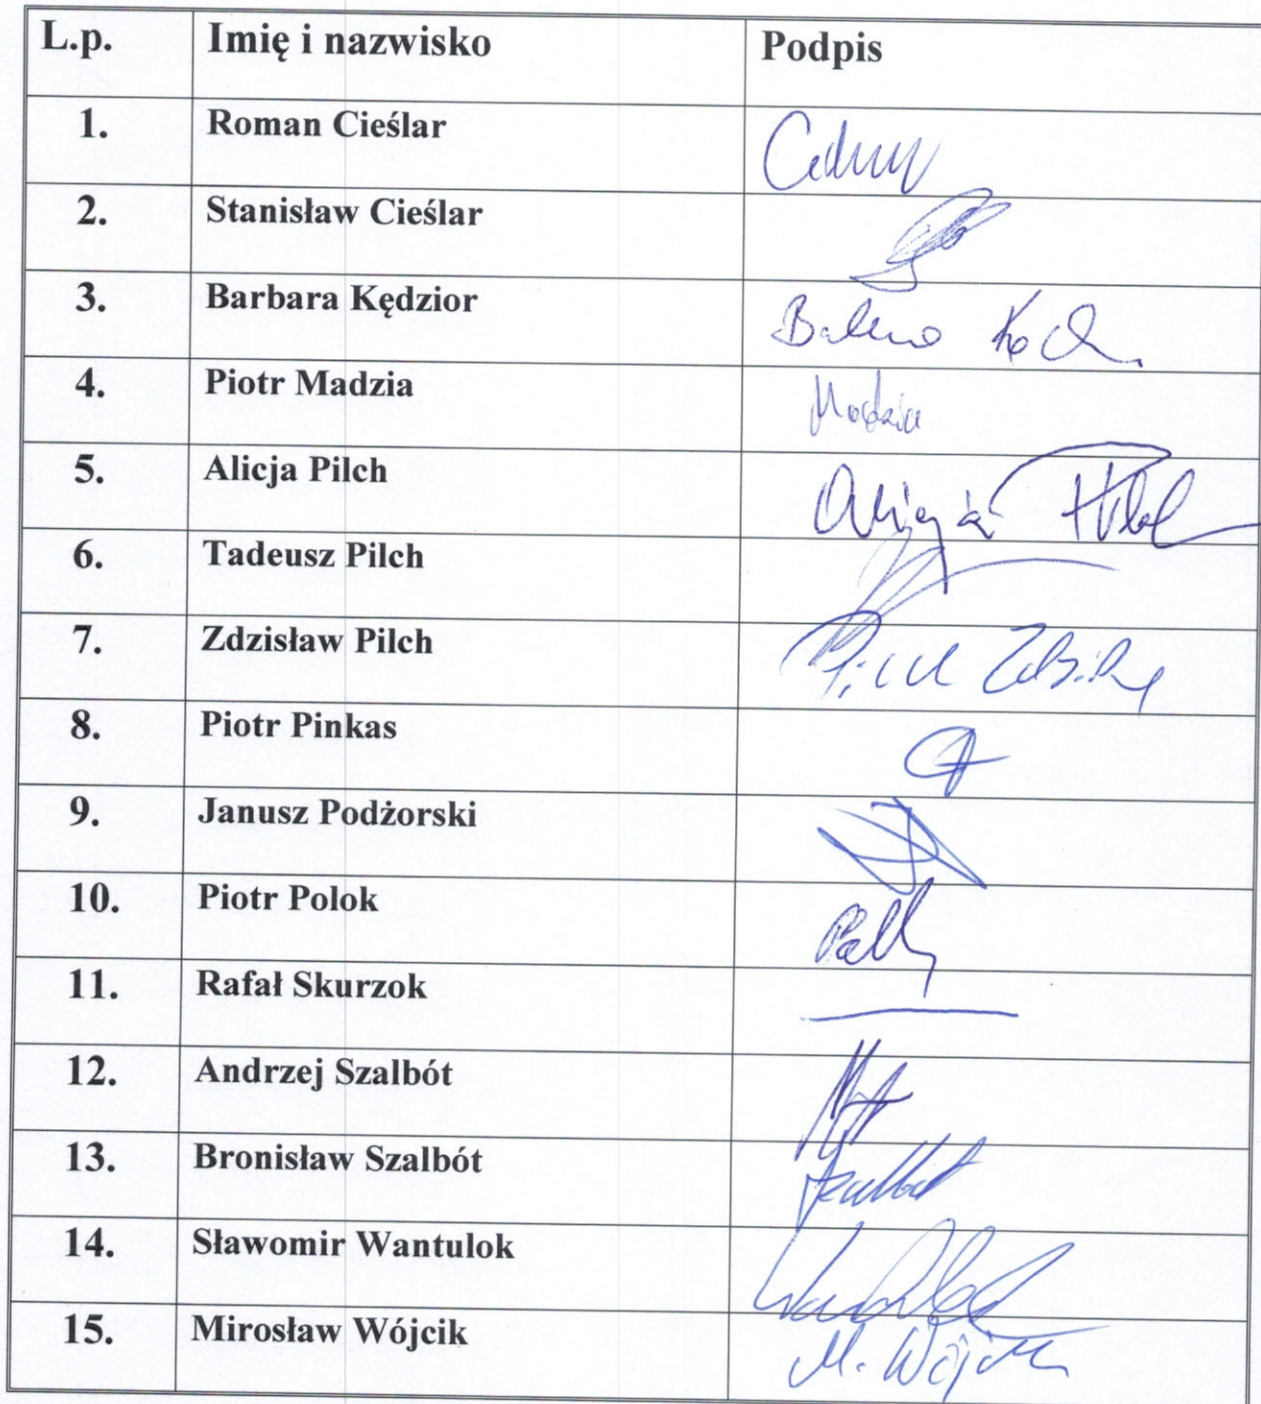 L.p. Imię i nazwisko Podpis
1. Roman Cieślar
2. Stanisław Cieślar
3. Barbara Kędzior
4. Piotr Madzia Madzia
5. Alicja Pilch Alicja Pilch
6. Tadeusz Pilch
7. Zdzisław Pilch Pilch
8. Piotr Pinkas
9. Janusz Podżorski
10. Piotr Polok
11. Rafał Skurzok
12. Andrzej Szalbót
13. Bronisław Szalbót Szalbót
14. Sławomir Wantulok
15. Mirosław Wójcik M. Wójcik